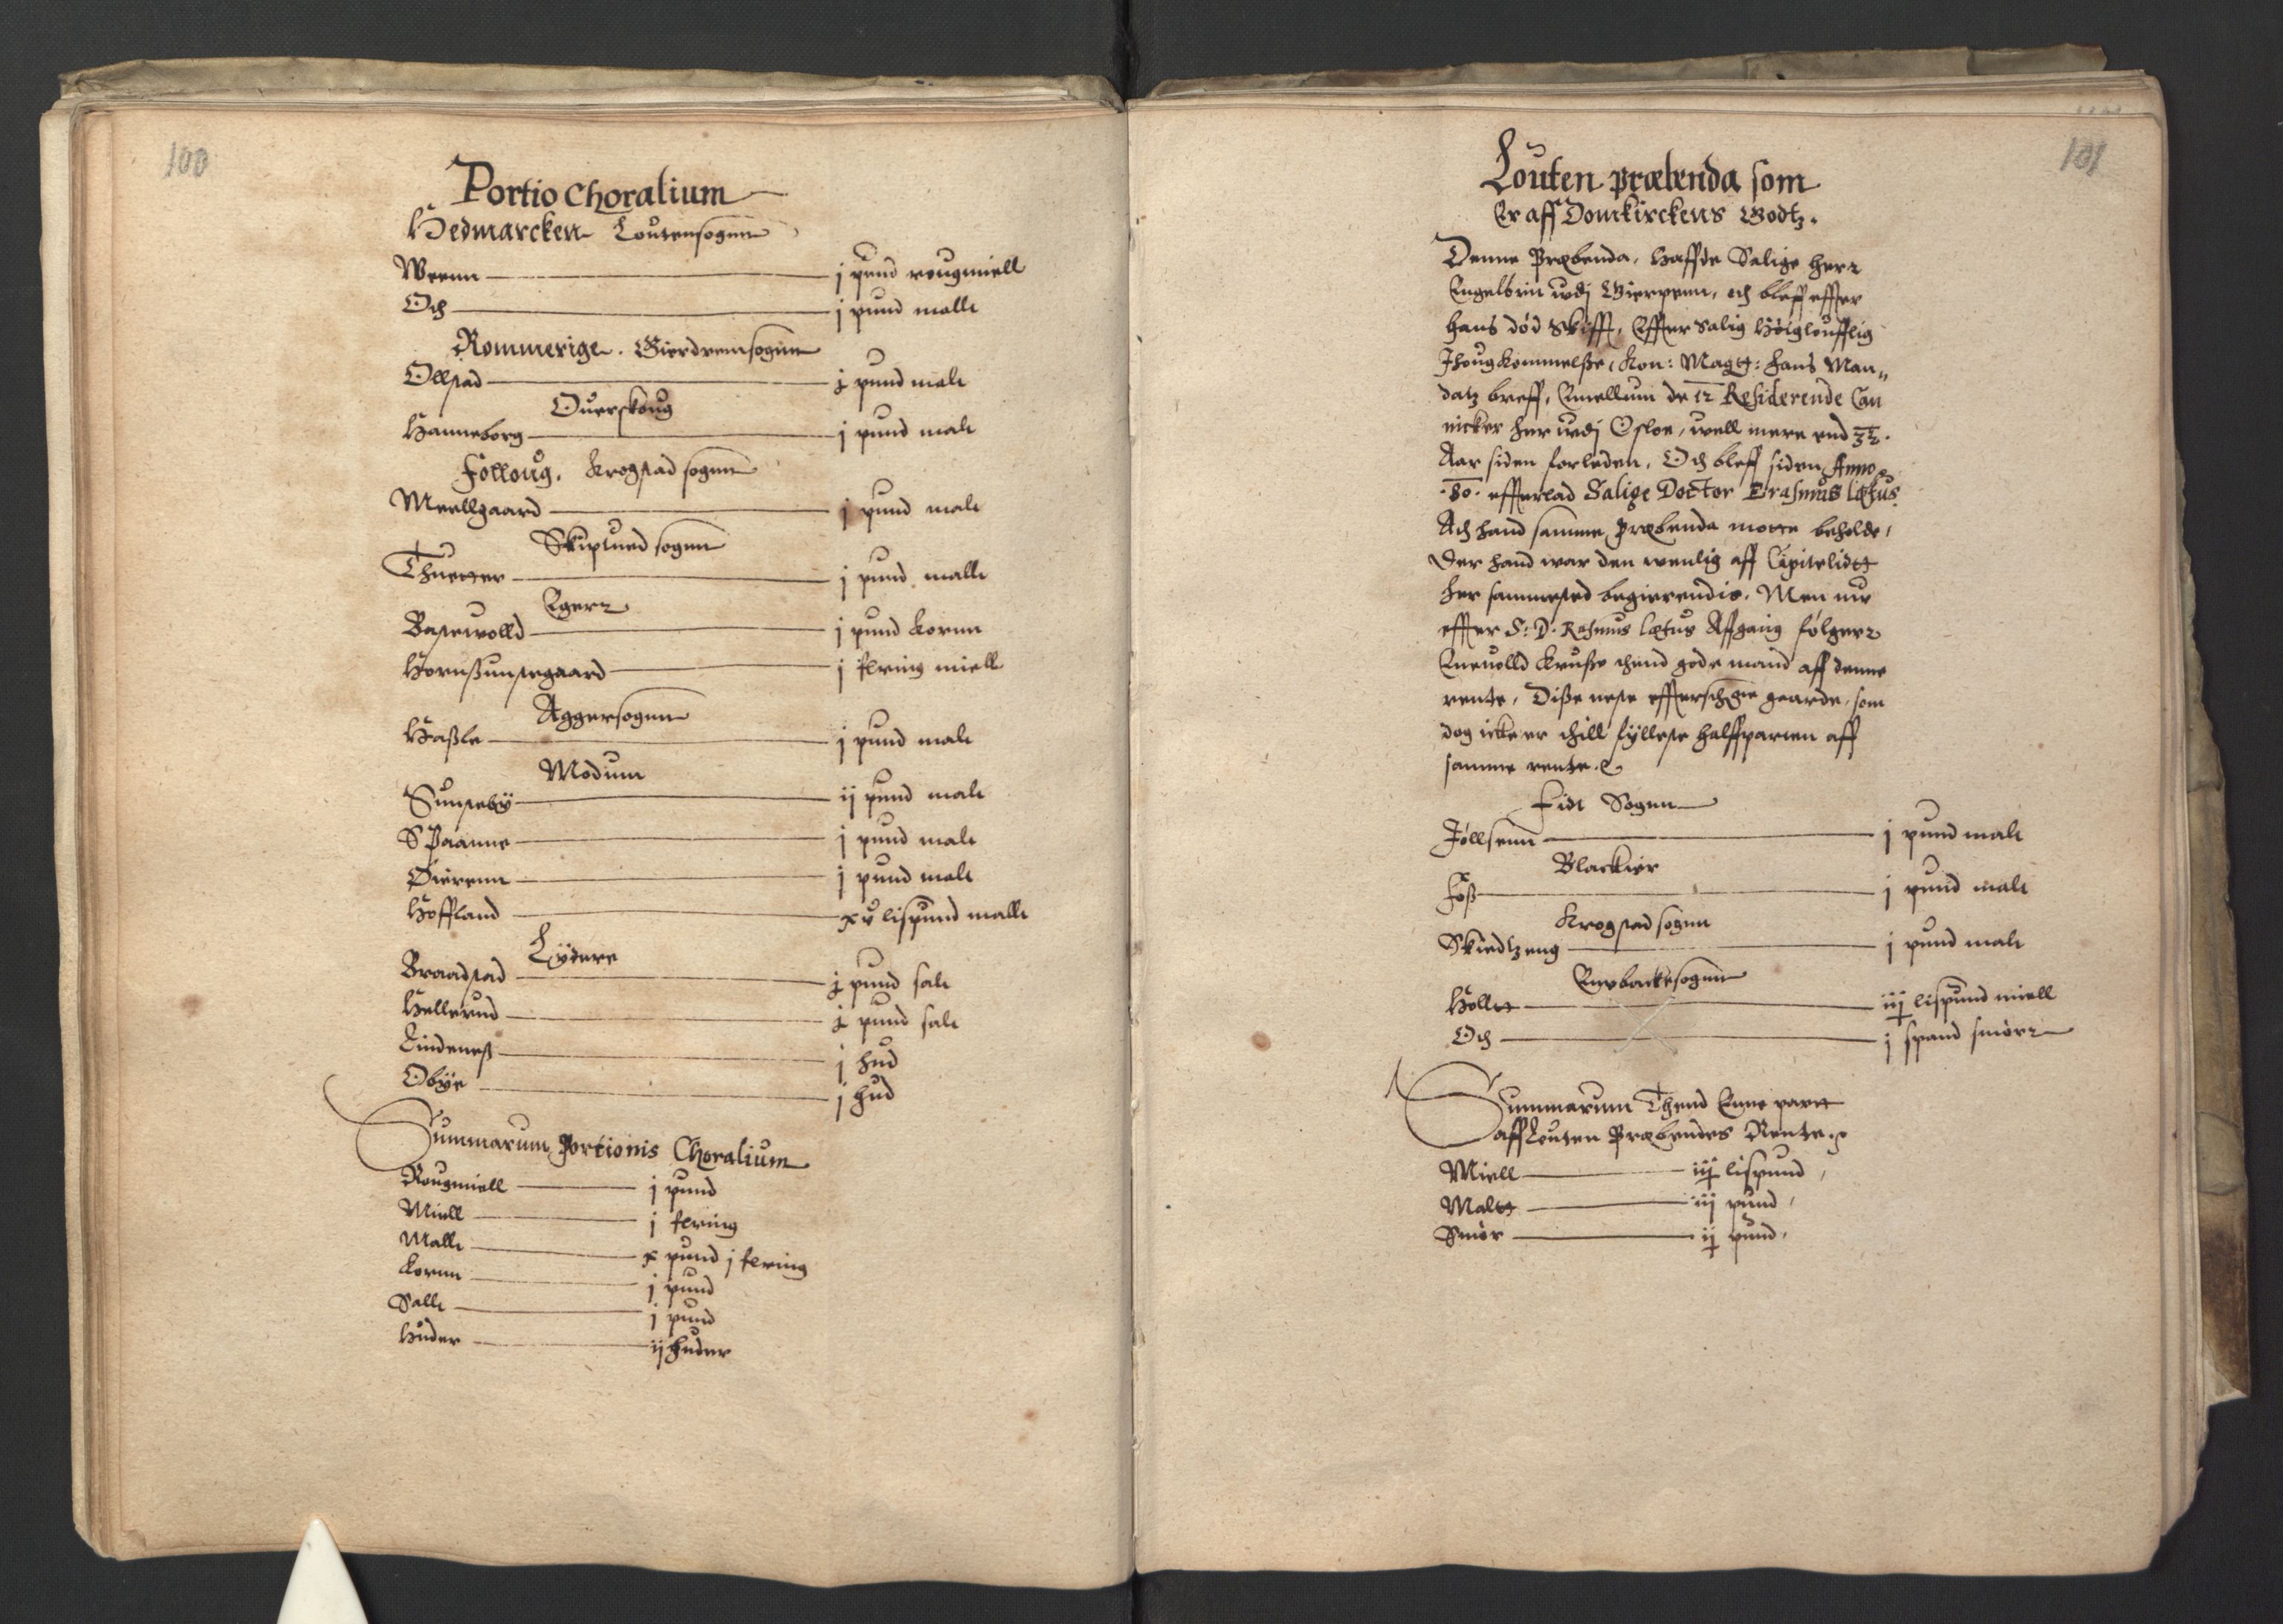 100
Portio Choralium
Hedmarcken Loutensognn
Weenn — j pund rougmiell
Och — j pund mallt
Rommerige. Gierdremsognn
Ollstad — j pund malt
Ouerskoug
Hanneborg — j pund malt
Folloug. Krogstad sognn
Meellgaard — j pund malt
Skiptued sognn
Thuetter — j pund mallt
Egerr
Bastewolld — j pund kornn
Hornssunstegaard — j fering miell
Aggersognn
Hassle — j pund malt
Modum
Sunsteby — ij pund malt
Spaanne — j pund malt
Øierenn — j pund malt
Hoffland — xv lispund mallt
Lydere
Braadstad — j pund salt
Hellerud — j pund salt
Lindeness — j hud
Obye — j hud
Summarum Portionis Choralium
Rougmiell — j pund
Miell — j fering
Mallt — x pund j fering
Kornn — j pund
Sallt — j pund
Huder — ij huder
101
Louten præbenda som
Er aff Domkirckens Godtz.
Denne Præbenda, haffde Salige herr
Engelbrin udj Gierpenn, och bleff effter
hans død Skifft, Effter Salig Høigloufflig
Ihougkommelsze, Kon: Maytt: hans Man„
datz breff, Emellum de 12 Residerende Can
nicker her udj Osloe, well mere end 32.
Aar siden forleden. Och bleff siden Anno
.80. effterlad Salige Doctor Erasmus Lætus.
Ath hand samme Præbenda motte beholde,
Der hand war den wenlig aff Capitelidtt
her sammested begierendis. Men nu
effter S: D. Rasmus Lætus Affgang følgerr
Eneuolld Krusse thend gode mand aff denne
rente, Disse neste efferschreffne gaarde, som
dog icke er thill fylleste halffparten aff
samme rente.
Fidt Sognn
Jøllsenn — j pund malt
Blackier
Foss — j pund malt
Krogstad sognn
Skiedtzeng — j pund malt
Enebackesognn
Holltt — iij lispund miell
Och — j spand smørr
Summarum Thend Enne partt
aff Louten Præbendes Rente.
Miell — iij lispund,
Maltt — iij pund,
Smør — ij pund,